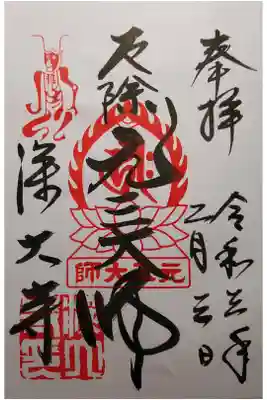 奉拝
令和五年
二月三日
厄除
元三大師
元三大師
深大寺